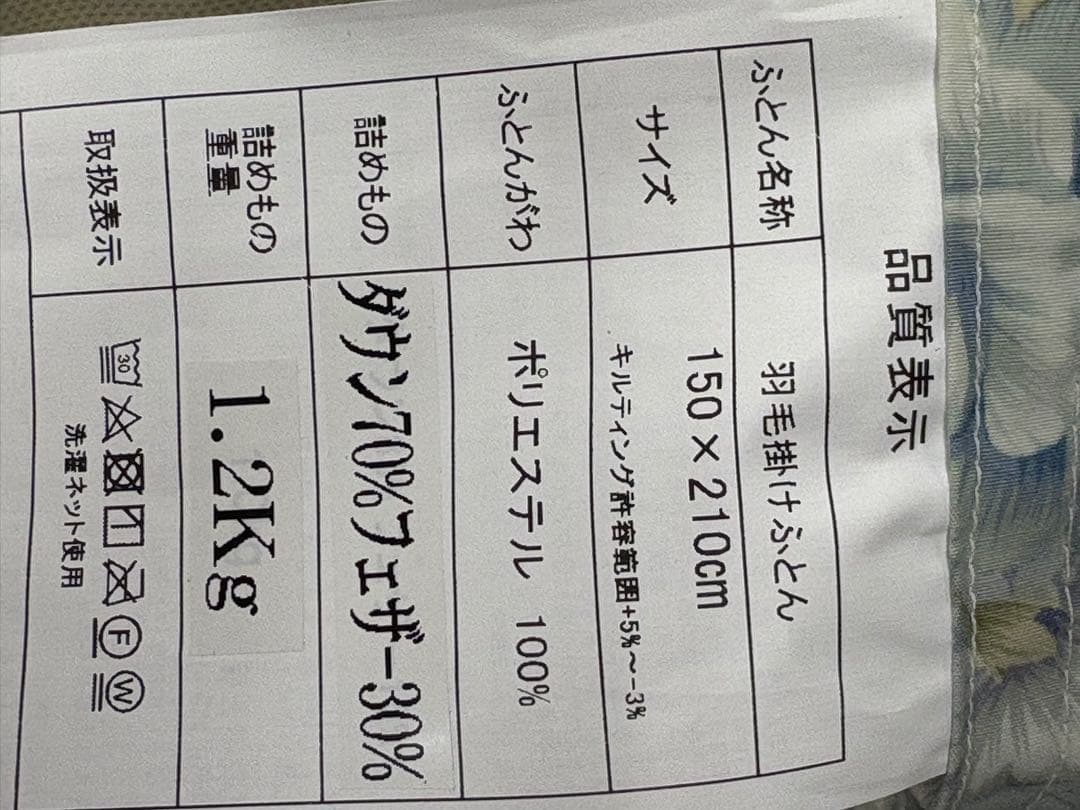 品質表示
ふとん名称 羽毛掛けふとん
サイズ 150×210cm
キルティング許容範囲+5%～-3%
ふとんがわ ポリエステル 100%
詰めもの ダウン70%フェザー30%
詰めもの
重量 1.2Kg
取扱表示 30 F W
洗濯ネット使用